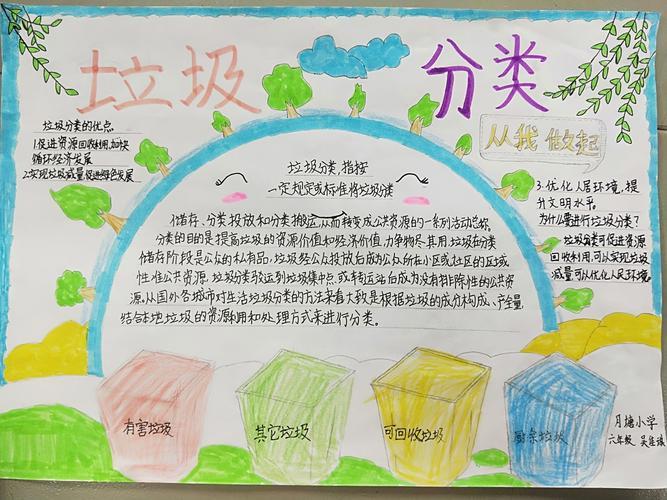 垃圾分类
从我做起
垃圾分类的优点
1.促进资源回收利用,加快
循环经济发展
2.实现垃圾减量促进绿色发展
垃圾分类,指按
一定规定或标准将垃圾分类
储存、分类投放和分类搬运,从而转变成公共资源的一系列活动总称,
分类的目的是提高垃圾的资源价值和经济价值,力争物尽其用.垃圾在分类
储存阶段是公众的私有品,垃圾经公众投放后成为公众所在小区或社区的区域
性准公共资源,垃圾分类驳运到垃圾集中点或转运站后成为没有排除性的公共资
源.从国外各城市对生活垃圾分类的方法来看大致是根据垃圾的成分构成、产生量,
结合本地垃圾的资源利用和处理方式来进行分类。
3.优化人居环境,提
升文明水平。
为什么要进行垃圾分类?
垃圾分类可促进资源
回收利用,可以实现垃圾
减量可以优化人民环境。
有害垃圾
其它垃圾
可回收垃圾
厨余垃圾
月塘小学
六年级 吴佳